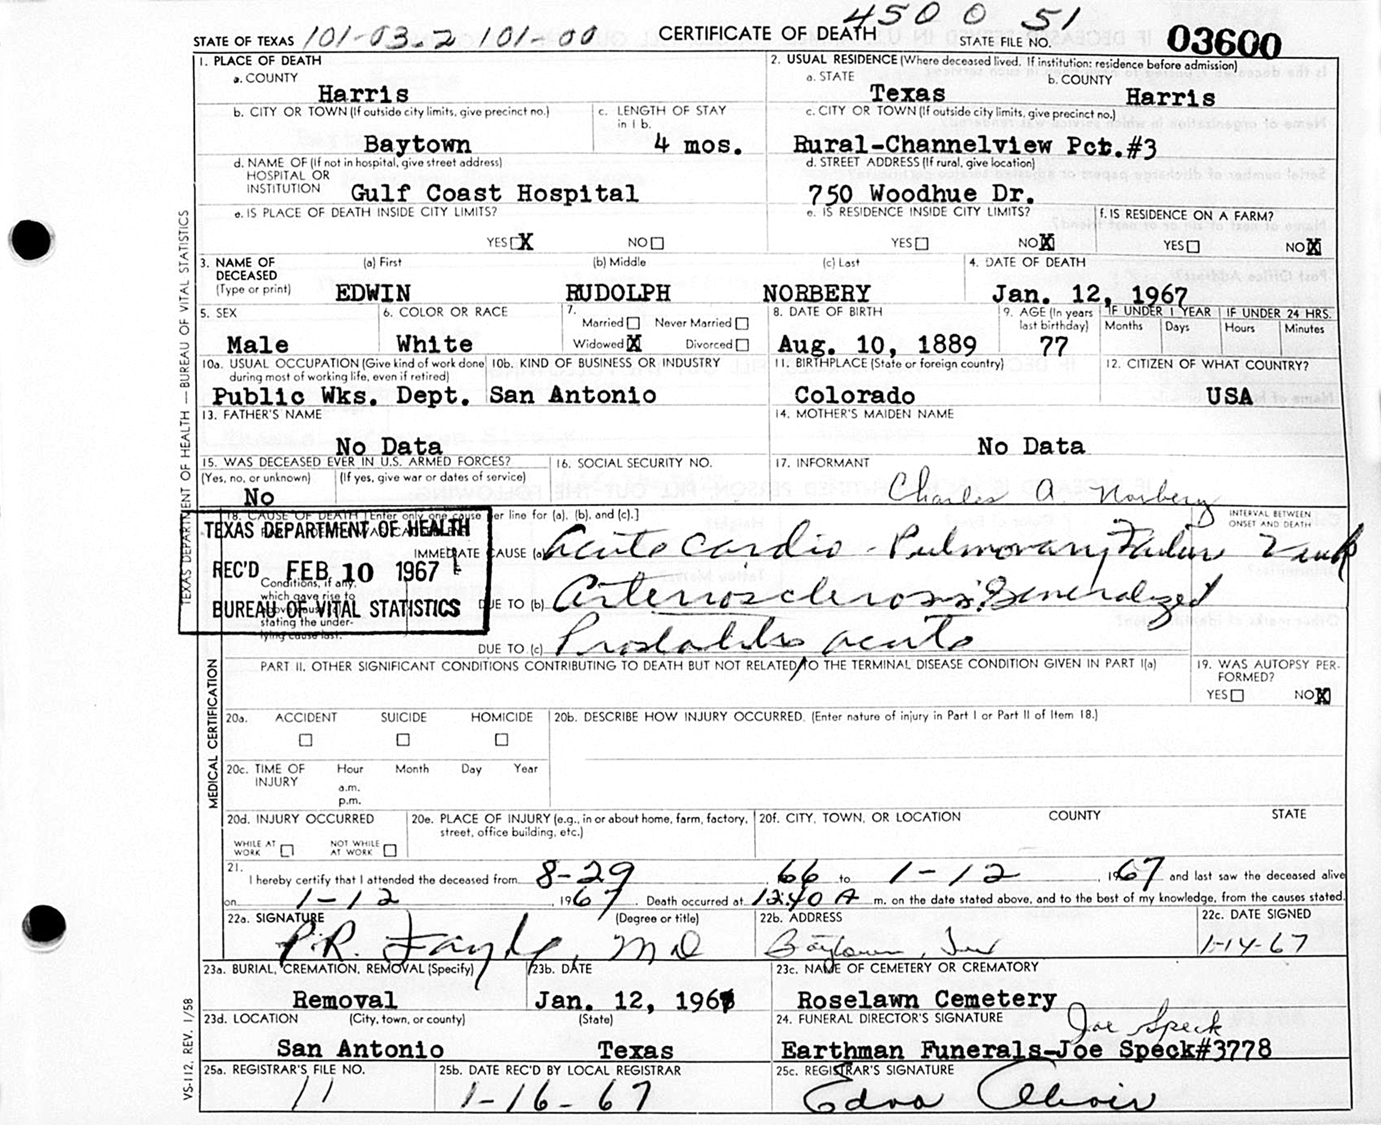 450 0 51
STATE OF TEXAS 101-03.2 101-00 CERTIFICATE OF DEATH STATE FILE NO. 03600
1. PLACE OF DEATH
a. COUNTY
Harris
2. USUAL RESIDENCE (Where deceased lived. If institution: residence before admission)
a. STATE b. COUNTY
Texas Harris
b. CITY OR TOWN (If outside city limits, give precinct no.)
Baytown
c. LENGTH OF STAY
in 1 b.
4 mos.
c. CITY OR TOWN (If outside city limits, give precinct no.)
Rural-Channelview Pct.#3
d. NAME OF (If not in hospital, give street address)
HOSPITAL OR
INSTITUTION Gulf Coast Hospital
d. STREET ADDRESS (If rural, give location)
750 Woodhue Dr.
e. IS PLACE OF DEATH INSIDE CITY LIMITS?
YES X NO
e. IS RESIDENCE INSIDE CITY LIMITS?
YES NO X
f. IS RESIDENCE ON A FARM?
YES NO X
3. NAME OF
DECEASED
(Type or print)
(a) First (b) Middle (c) Last
EDWIN RUDOLPH NORBERY
4. DATE OF DEATH
Jan. 12, 1967
5. SEX
Male
6. COLOR OR RACE
White
7.
Married Never Married
Widowed X Divorced
8. DATE OF BIRTH
Aug. 10, 1889
9. AGE (In years
last birthday)
77
IF UNDER 1 YEAR
Months Days
IF UNDER 24 HRS.
Hours Minutes
10a. USUAL OCCUPATION (Give kind of work done
during most of working life, even if retired)
Public Wks. Dept.
10b. KIND OF BUSINESS OR INDUSTRY
San Antonio
11. BIRTHPLACE (State or foreign country)
Colorado
12. CITIZEN OF WHAT COUNTRY?
USA
13. FATHER'S NAME
No Data
14. MOTHER'S MAIDEN NAME
No Data
15. WAS DECEASED EVER IN U.S. ARMED FORCES?
(Yes, no, or unknown) (If yes, give war or dates of service)
No
16. SOCIAL SECURITY NO.
17. INFORMANT
Charles A. Norbery
18. CAUSE OF DEATH [Enter only one cause per line for (a), (b), and (c).]
INTERVAL BETWEEN
ONSET AND DEATH
IMMEDIATE CAUSE (a) Acute Cardio-Pulmonary Failure
Conditions, if any,
which gave rise to
stating the under-
lying cause last.
DUE TO (b) Arteriosclerosis Generalized
DUE TO (c) Prostatitis acute
TEXAS DEPARTMENT OF HEALTH
REC'D FEB 10 1967
BUREAU OF VITAL STATISTICS
PART II. OTHER SIGNIFICANT CONDITIONS CONTRIBUTING TO DEATH BUT NOT RELATED TO THE TERMINAL DISEASE CONDITION GIVEN IN PART I(a)
19. WAS AUTOPSY PER-
FORMED?
YES NO X
20a. ACCIDENT SUICIDE HOMICIDE
20b. DESCRIBE HOW INJURY OCCURRED. (Enter nature of injury in Part I or Part II of Item 18.)
20c. TIME OF
INJURY
Hour Month Day Year
a.m.
p.m.
20d. INJURY OCCURRED
WHILE AT
WORK
NOT WHILE
AT WORK
20e. PLACE OF INJURY (e.g., in or about home, farm, factory,
street, office building, etc.)
20f. CITY, TOWN, OR LOCATION COUNTY STATE
21.
I hereby certify that I attended the deceased from 8-29 66 to 1-12, 1967 and last saw the deceased alive
on 1-12, 1967. Death occurred at 12:40 A m. on the date stated above, and to the best of my knowledge, from the causes stated.
22a. SIGNATURE (Degree or title)
P.R. MD
22b. ADDRESS
Baytown,
22c. DATE SIGNED
1-14-67
23a. BURIAL, CREMATION, REMOVAL (Specify)
Removal
23b. DATE
Jan. 12, 1967
23c. NAME OF CEMETERY OR CREMATORY
Roselawn Cemetery
23d. LOCATION (City, town, or county) (State)
San Antonio Texas
24. FUNERAL DIRECTOR'S SIGNATURE
Joe Speck
Earthman Funerals-Joe Speck#3778
25a. REGISTRAR'S FILE NO.
11
25b. DATE REC'D BY LOCAL REGISTRAR
1-16-67
25c. REGISTRAR'S SIGNATURE
Edna
TEXAS DEPARTMENT OF HEALTH — BUREAU OF VITAL STATISTICS
MEDICAL CERTIFICATION
VS-112, REV. 1/58